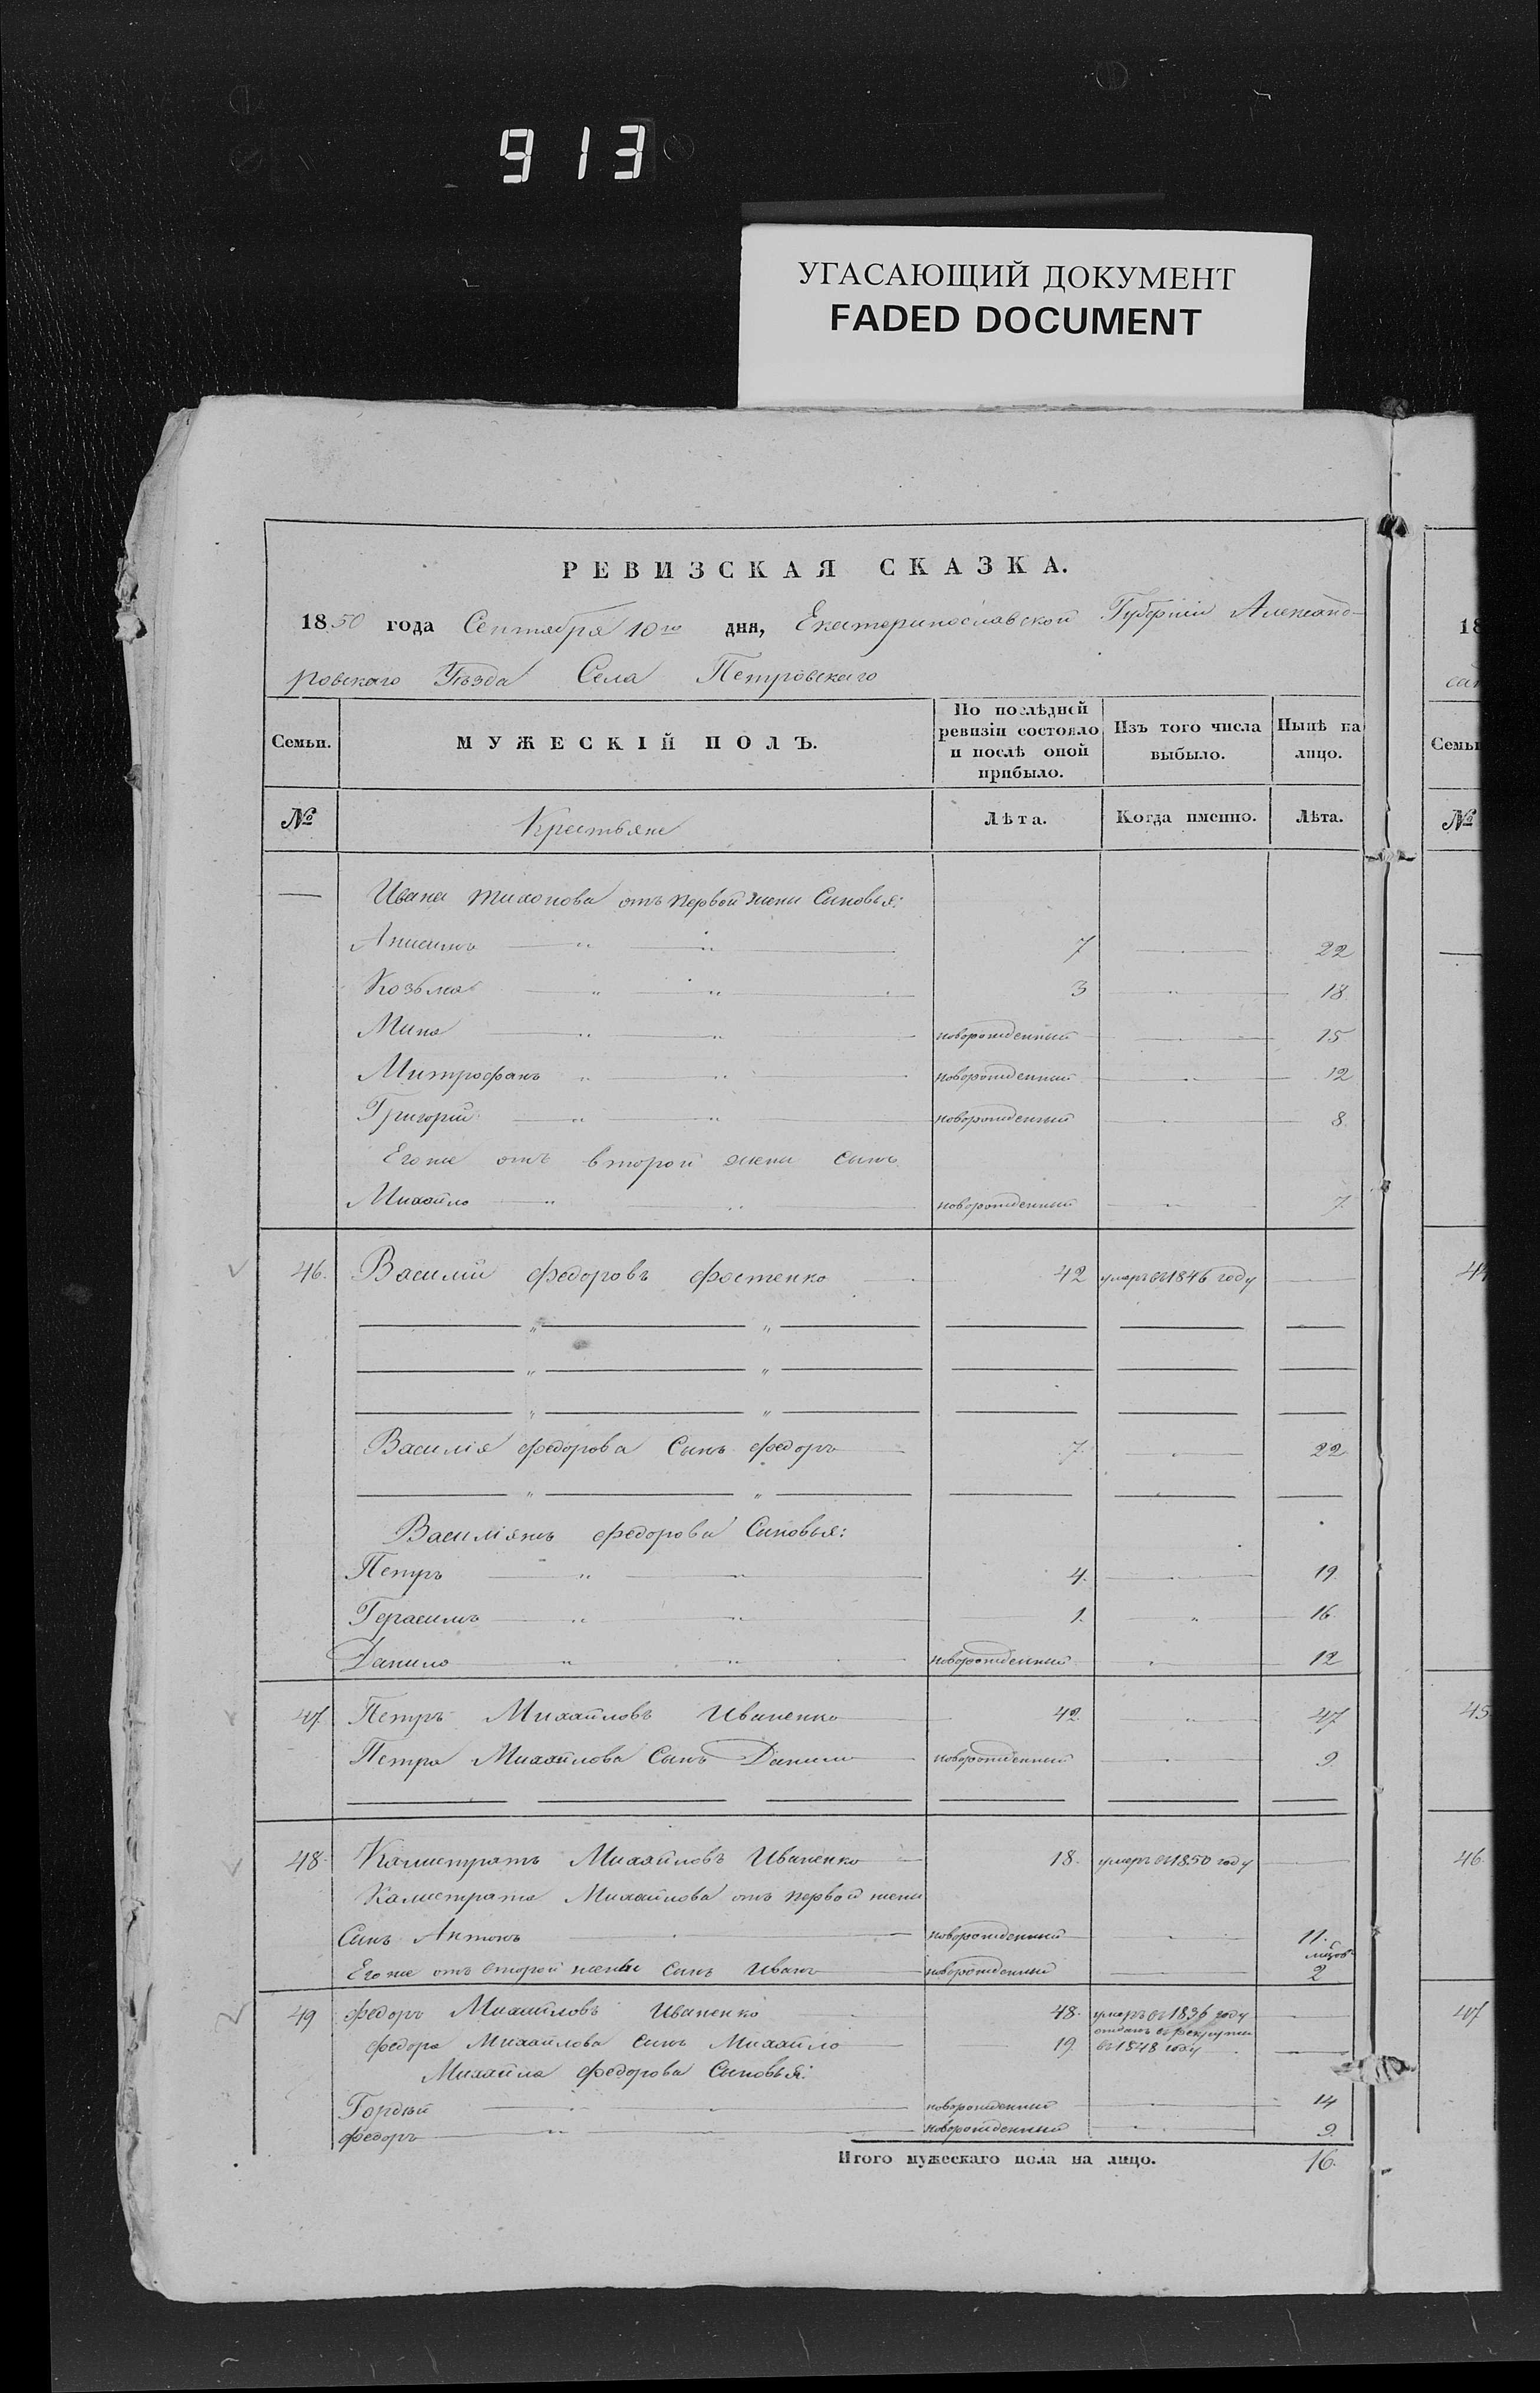 913
УГАСАЮЩИЙ ДОКУМЕНТ
FADED DOCUMENT
РЕВИЗСКАЯ СКАЗКА.
1850 года Сентября 10го дня, Екатеринославской Губерніи Александ-
ровскаго Уѣзда Села Петровскаго
Семьи. МУЖЕСКІЙ ПОЛЪ. По послѣдней ревизіи состояло и послѣ оной прибыло. Изъ того числа выбыло. Нынѣ на лицо.
№ Крестьяне Лѣта. Когда именно. Лѣта.
Ивана Тихонова отъ первой жены Сыновья:
Анисимъ 7 22
Козьма 3 18
Мина новорожденный 15
Митрофанъ новорожденный 12
Григорій новорожденный 8.
Его же отъ второй жены сынъ
Михайло новорожденный 7.
46. Василій Федоровъ Фостенко 42 умеръ въ 1846 году
Василія Федорова Сынъ Федоръ 7. 22
Василія жъ Федорова Сыновья:
Петръ 4. 19.
Герасимъ 1. 16
Данило новорожденный 12
47. Петръ Михайловъ Иваненко 42. 47
Петра Михайлова Сынъ Данило новорожденный 9.
48. Калистратъ Михайловъ Иваненко 18. умеръ въ 1850 году
Калистрата Михайлова отъ первой жены
Сынъ Антонъ новорожденный 11.
Его же отъ второй жены сынъ Иванъ новорожденный 2
49 Федоръ Михайловъ Иваненко 48. умеръ въ 1836 году
Федора Михайлова сынъ Михайло 19. отданъ въ рекруты въ 1848 году
Михайла Федорова Сыновья:
Гордѣй новорожденный 14
Федоръ новорожденный 9.
Итого мужескаго пола на лицо. 16.
18
Семьи
№
44
45.
46.
47